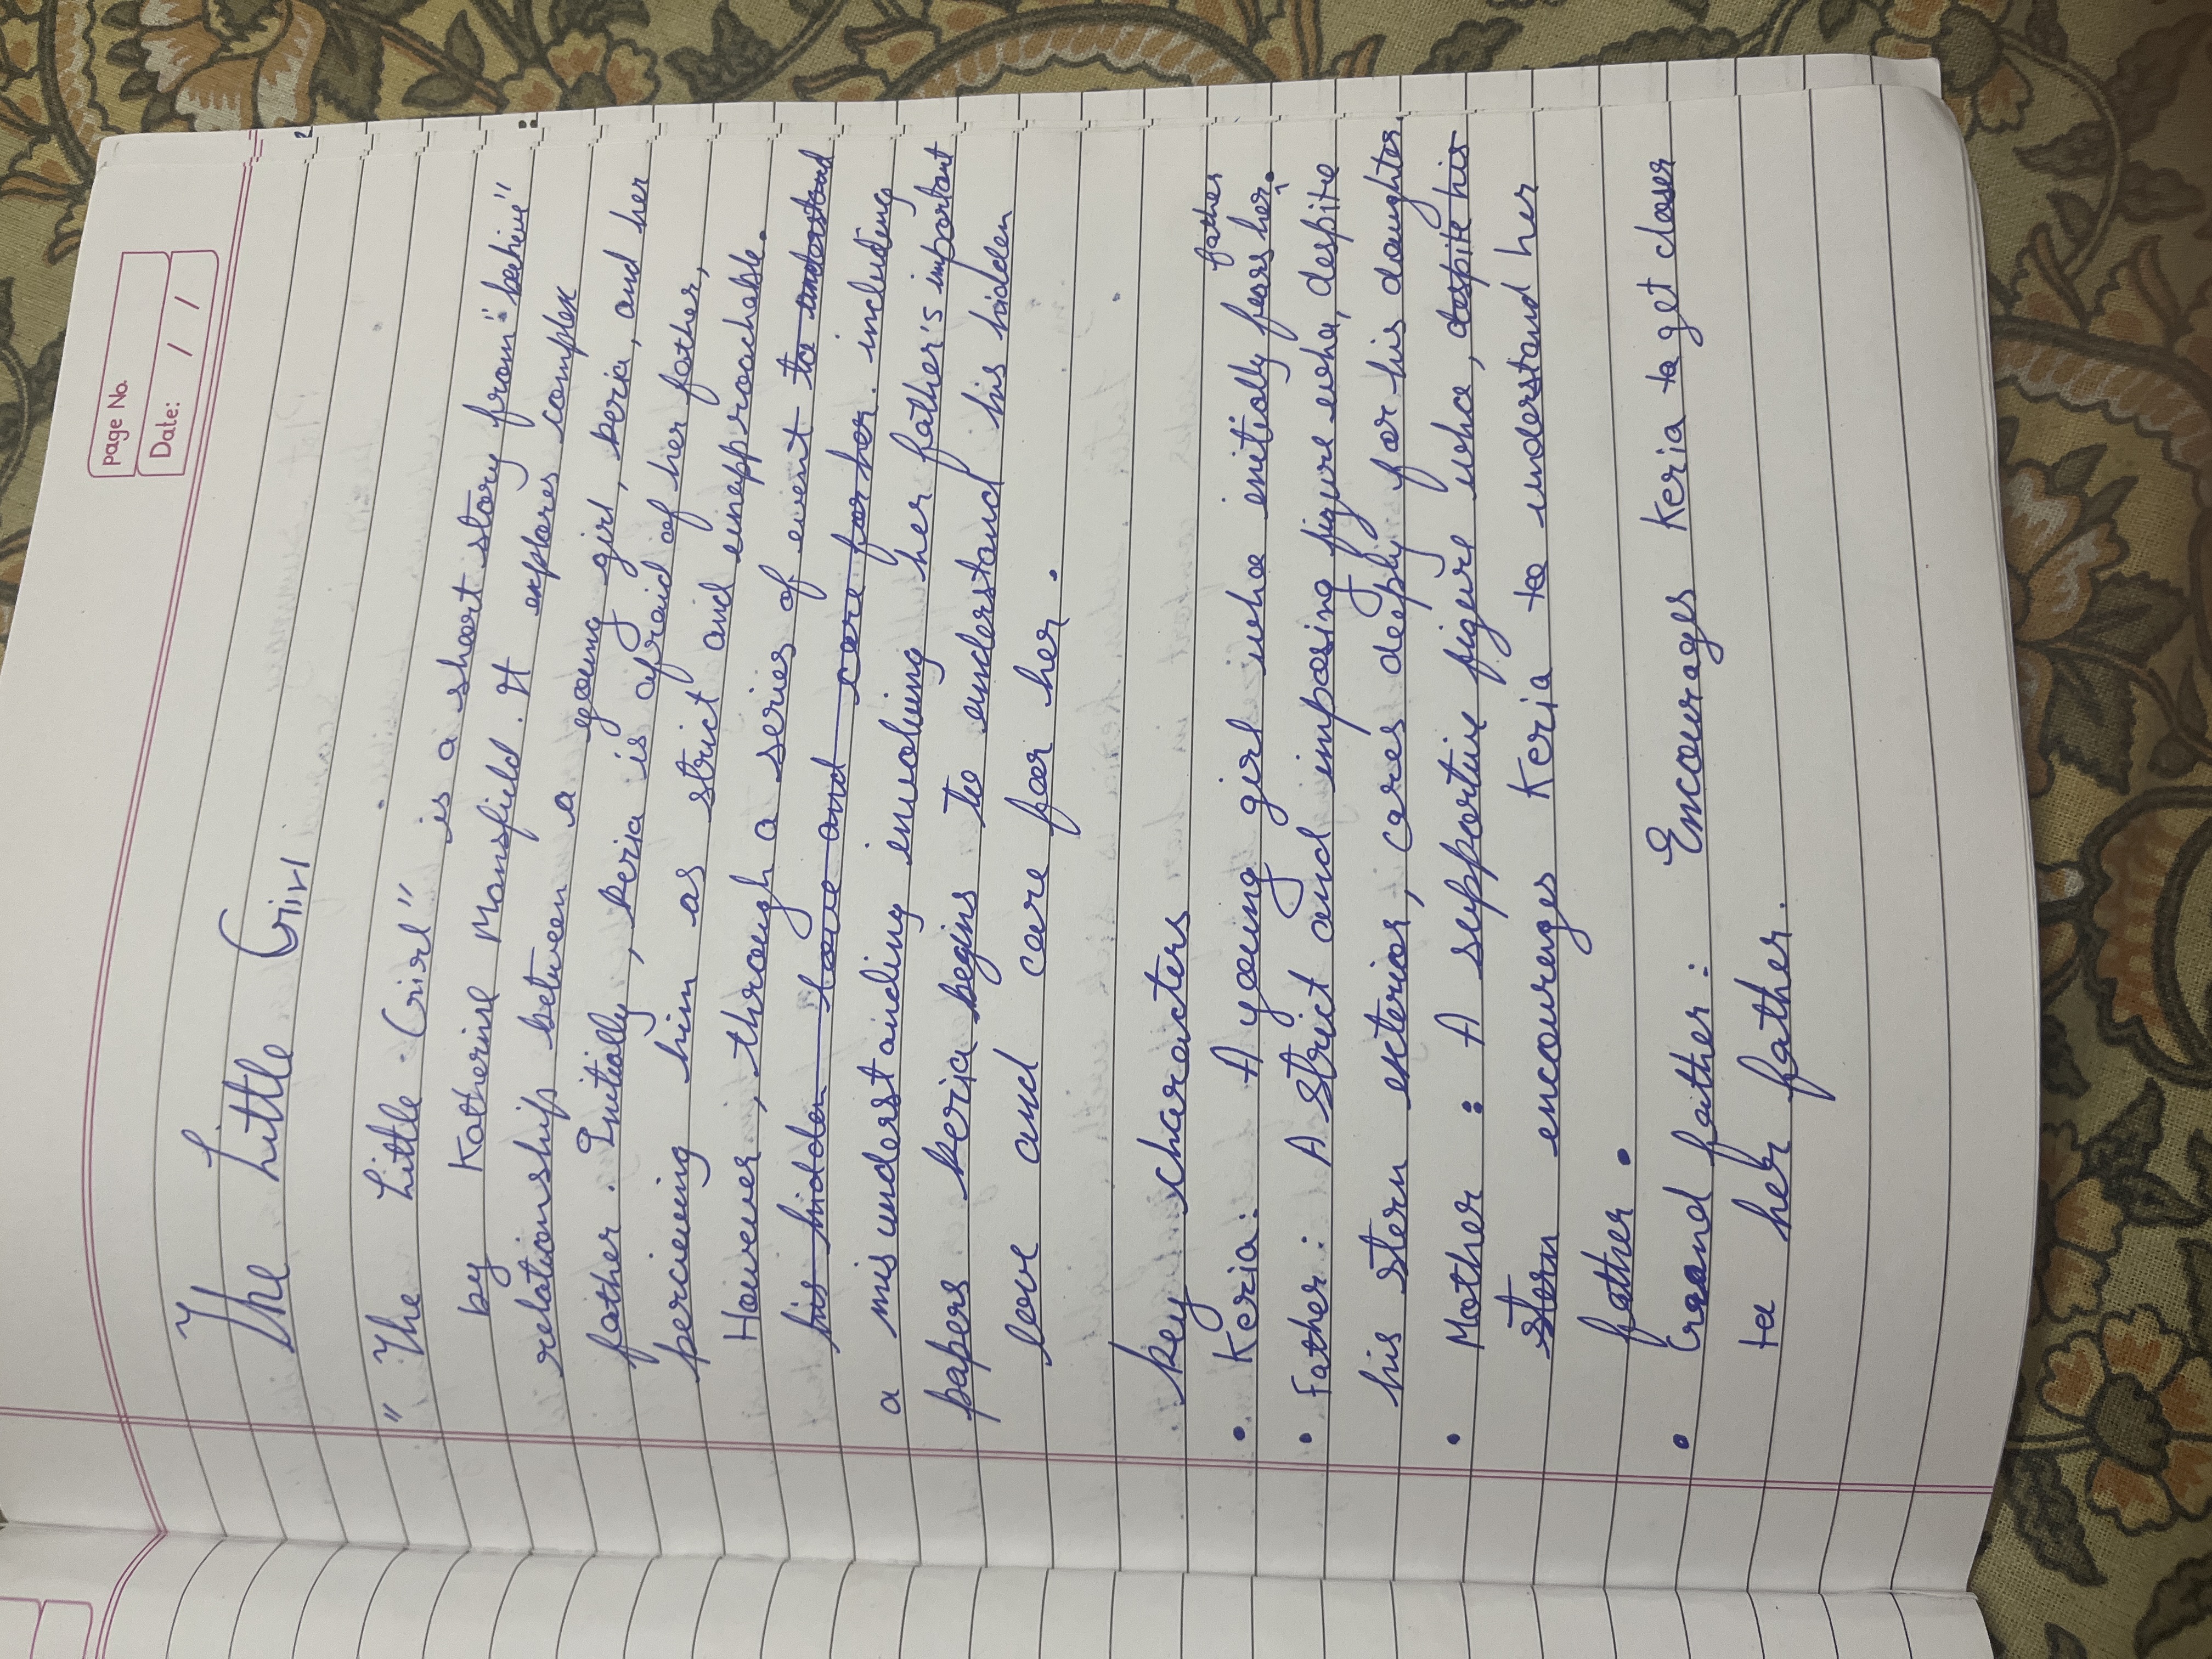 Page No.
Date: / /
The Little Girl
"The Little Girl" is a short story from "behive"
by Katherine Mansfield. It explores complex
relationship between a young girl, keria, and her
father. Initially, keria is afraid of her father,
perciening him as strict and unapproachable.
However, through a series of event to understand
his hidden love and care for her. including
a misunderstanding involving her father's important
papers keria begins to understand his hidden
love and care for her.
key characters
• Keria: A young girl who initially fears her father.
• Father: A strict and imposing figure who, despite
his stern exterior, cares deeply for his daughter
• Mother : A supportive figure who, despite his
stern encourenges Keria to understand her
father.
• Grand father: Encourages Keria to get closer
to her father.